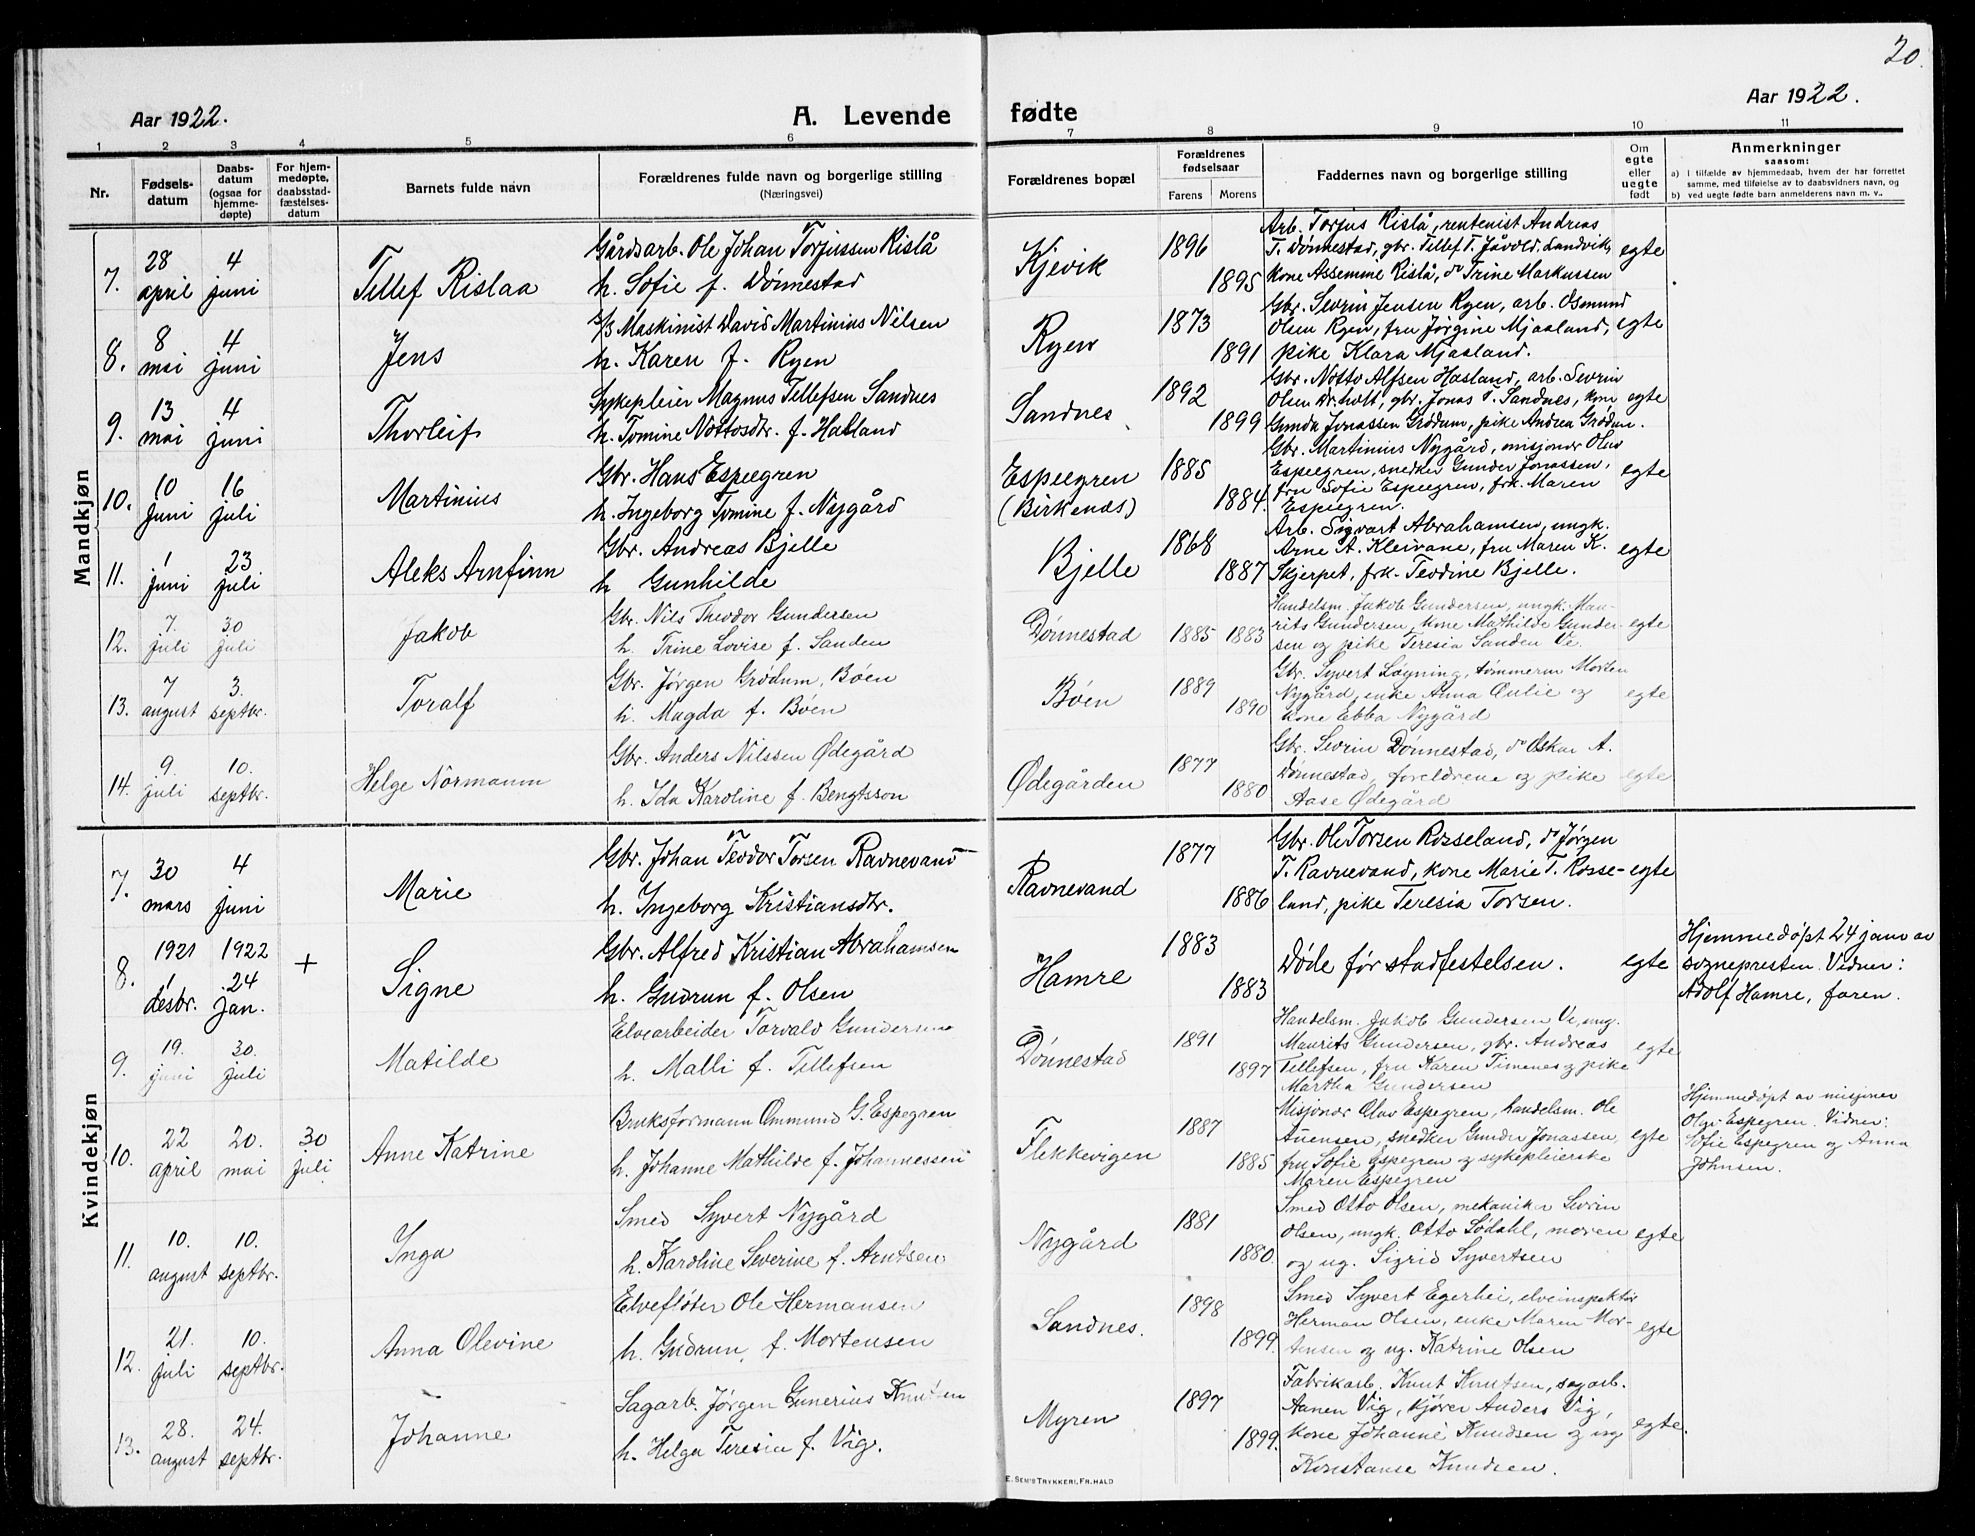 20.
Aar 1922.
A. Levende fødte
Aar 1922.
1 2 3 4 5 6 7 8 9 10 11
Nr.
Fødsels-datum
Daabs-datum (ogsaa for hjemme-døpte)
For hjem-medøpte, daabsstad-fæstelses-datum
Barnets fulde navn
Forældrenes fulde navn og borgerlige stilling
(Næringsvei)
Forældrenes bopæl
Forældrenes fødselsaar
Farens Morens
Faddernes navn og borgerlig stilling
Om egte eller uegte født
Anmerkninger
saasom:
a) I tilfælde av hjemmedaab, hvem der har forrettet samme, med tilføielse av to daabsvidners navn, og
b) ved uegte fødte barn anmelderens navn m. v..
Mandkjøn
7. 28 april 4 juni Tellef Rislaa
Gårdsarb. Ole Johan Torjussen Rislå
h. Sofie f. Dønnestad
Kjevik 1896 1895
Arb. Torjus Rislå, rentenist Andreas
T. Dønnestad, gbr. Tellef T. Jåvold, Landvik,
kone Assemme Rislå, do Trine Markussen
egte
8. 8 mai 4 juni Jens
s/s Maskinist David Martinius Nilsen
h. Karen f. Ryen
Ryen 1873 1891
Gbr. Sevrin Jensen Ryen, arb. Osmund
Olsen Ryen, fru Jørgine Mjaaland,
pike Klara Mjaaland.
egte
9. 13 mai 4 juni Thorleif
Sykepleier Magnus Tellefsen Sandnes
h. Tomine Nottosdtr. f. Hasland
Sandnes 1892 1899
Gbr. Notto Alfsen Hasland, arb. Sevrin
Olsen Dr.holt, gbr. Jonas T. Sandnes, kone
Gunda Jonassen Grødum, pike Andrea Grødum.
egte
10. 10 juni 16 juli Martinius
Gbr. Hans Espeegren
h. Ingeborg Tomine f. Nygård
Espeegren (Birkenes) 1885 1884.
Gbr. Martinius Nygård, misjonær Olav
Espeegren, snedker Gunder Jonassen,
fru Sofie Espegren, frk. Maren
Espegren.
egte
11. 1 juni 23 juli Aleks Arnfinn
Gbr. Andreas Bjelle
h Gunhilde
Bjelle 1868 1887
Arb. Sigvart Abrahamsen, ungk.
Arne A. Kleivane, fru Maren K.
Skjerpet, frk. Teodine Bjelle.
egte
12. 7. juli 30 juli Jakob
Gbr. Nils Theodor Gundersen
h. Trine Lovise f. Sanden
Dønnestad 1885 1883
Handelsm. Jakob Gundersen, ungk. Mau-
rits Gundersen, kone Mathilde Gunder-
sen og pike Teresia Sanden Ve.
egte
13. 7 august 3. septbr. Toralf
Gbr. Jørgen Grødum, Bøen
h. Magda f. Bøen
Bøen 1889 1890
Gbr. Syvert Løyning, tømmerm Morten
Nygård, enke Anna Aulie og
kone Ebba Nygård
egte
14. 9. juli 10. septbr. Helge Normann
Gbr. Anders Nilssen Ødegård
h. Ida Karoline f. Bengtsson
Ødegården 1877 1880
Gbr. Sevrin Dønnestad, do Oskar A.
Dønnestad, foreldrene og pike
Aase Ødegård
egte
Kvindekjøn
7. 30 mars 4 juni Marie
Gbr. Johan Teodor Torsen Ravnevand
h. Ingeborg Kristiansdtr.
Ravnevand 1877 1886
Gbr. Ole Torsen Rosseland, do Jørgen
T. Ravnevand, kone Marie T. Rosse-
land, pike Teresia Torsen.
egte
8. 1921 1 desbr. 1922 24 jan. + Signe
Gbr. Alfred Kristian Abrahamsen
h. Gudrun f. Olsen
Hamre 1883 1883
Døde før stadfestelsen.
egte
Hjemmedøpt 24 jan av
sognepresten. Vidner:
Adolf Hamre, faren.
9. 19. juni 30. juli Matilde
Elvearbeider Torvald Gundersen
h. Malli f. Tellefsen
Dønnestad 1891 1897
Handelsm. Jakob Gundersen Ve, ung.
Maurits Gundersen, gbr. Andreas
Tellefsen, fru Karen Timenes og pike
Martha Gundersen
egte
10. 22 april 20. mai 30 juli Anne Katrine
Bruksformann Ommund G. Espegren
h. Johanne Mathilde f. Johannessen
Flekkevigen 1887 1885
Misjonær Olav Espegren, handelsm. Ole
Auensen, snedker Gunder Jonassen,
fru Sofie Espegren og sykepleierske
Maren Espegren
egte
Hjemmedøpt av misjonær
Olav Espegren. Vidner:
Sofie Espegren og Anna
Johnsen.
11. 10. august 10. septbr. Inga
Smed Syvert Nygård
h. Karoline Severine f. Arntsen
Nygård 1881 1880.
Smed Otto Olsen, mekaniker Sevrin
Olsen, ungk. Otto Sødahl, moren
og ug. Sigrid Syvertsen
egte
12. 21. juli 10. septbr. Anna Olevine
Elvefløter Ole Hermansen
h. Gudrun, f. Mortensen
Sandnes. 1898 1899.
Smed Syvert Egerhei, elveinspektør
Herman Olsen, enke Maren Mor-
tensen og ug. Katrine Olsen
egte
13. 28. august 24. septbr. Johanne
Sagarb. Jørgen Gunerius Knutsen
h. Helga Teresia f. Vig.
Myren 1897 1899.
Fabrikarb. Knut Knutsen, sagarb.
Aanen Vig, kjører Anders Vig,
kone Johanne Knudsen og ug
Konstanse Knudsen.
egte.
E. SEM'S TRYKKERI, FR.HALD